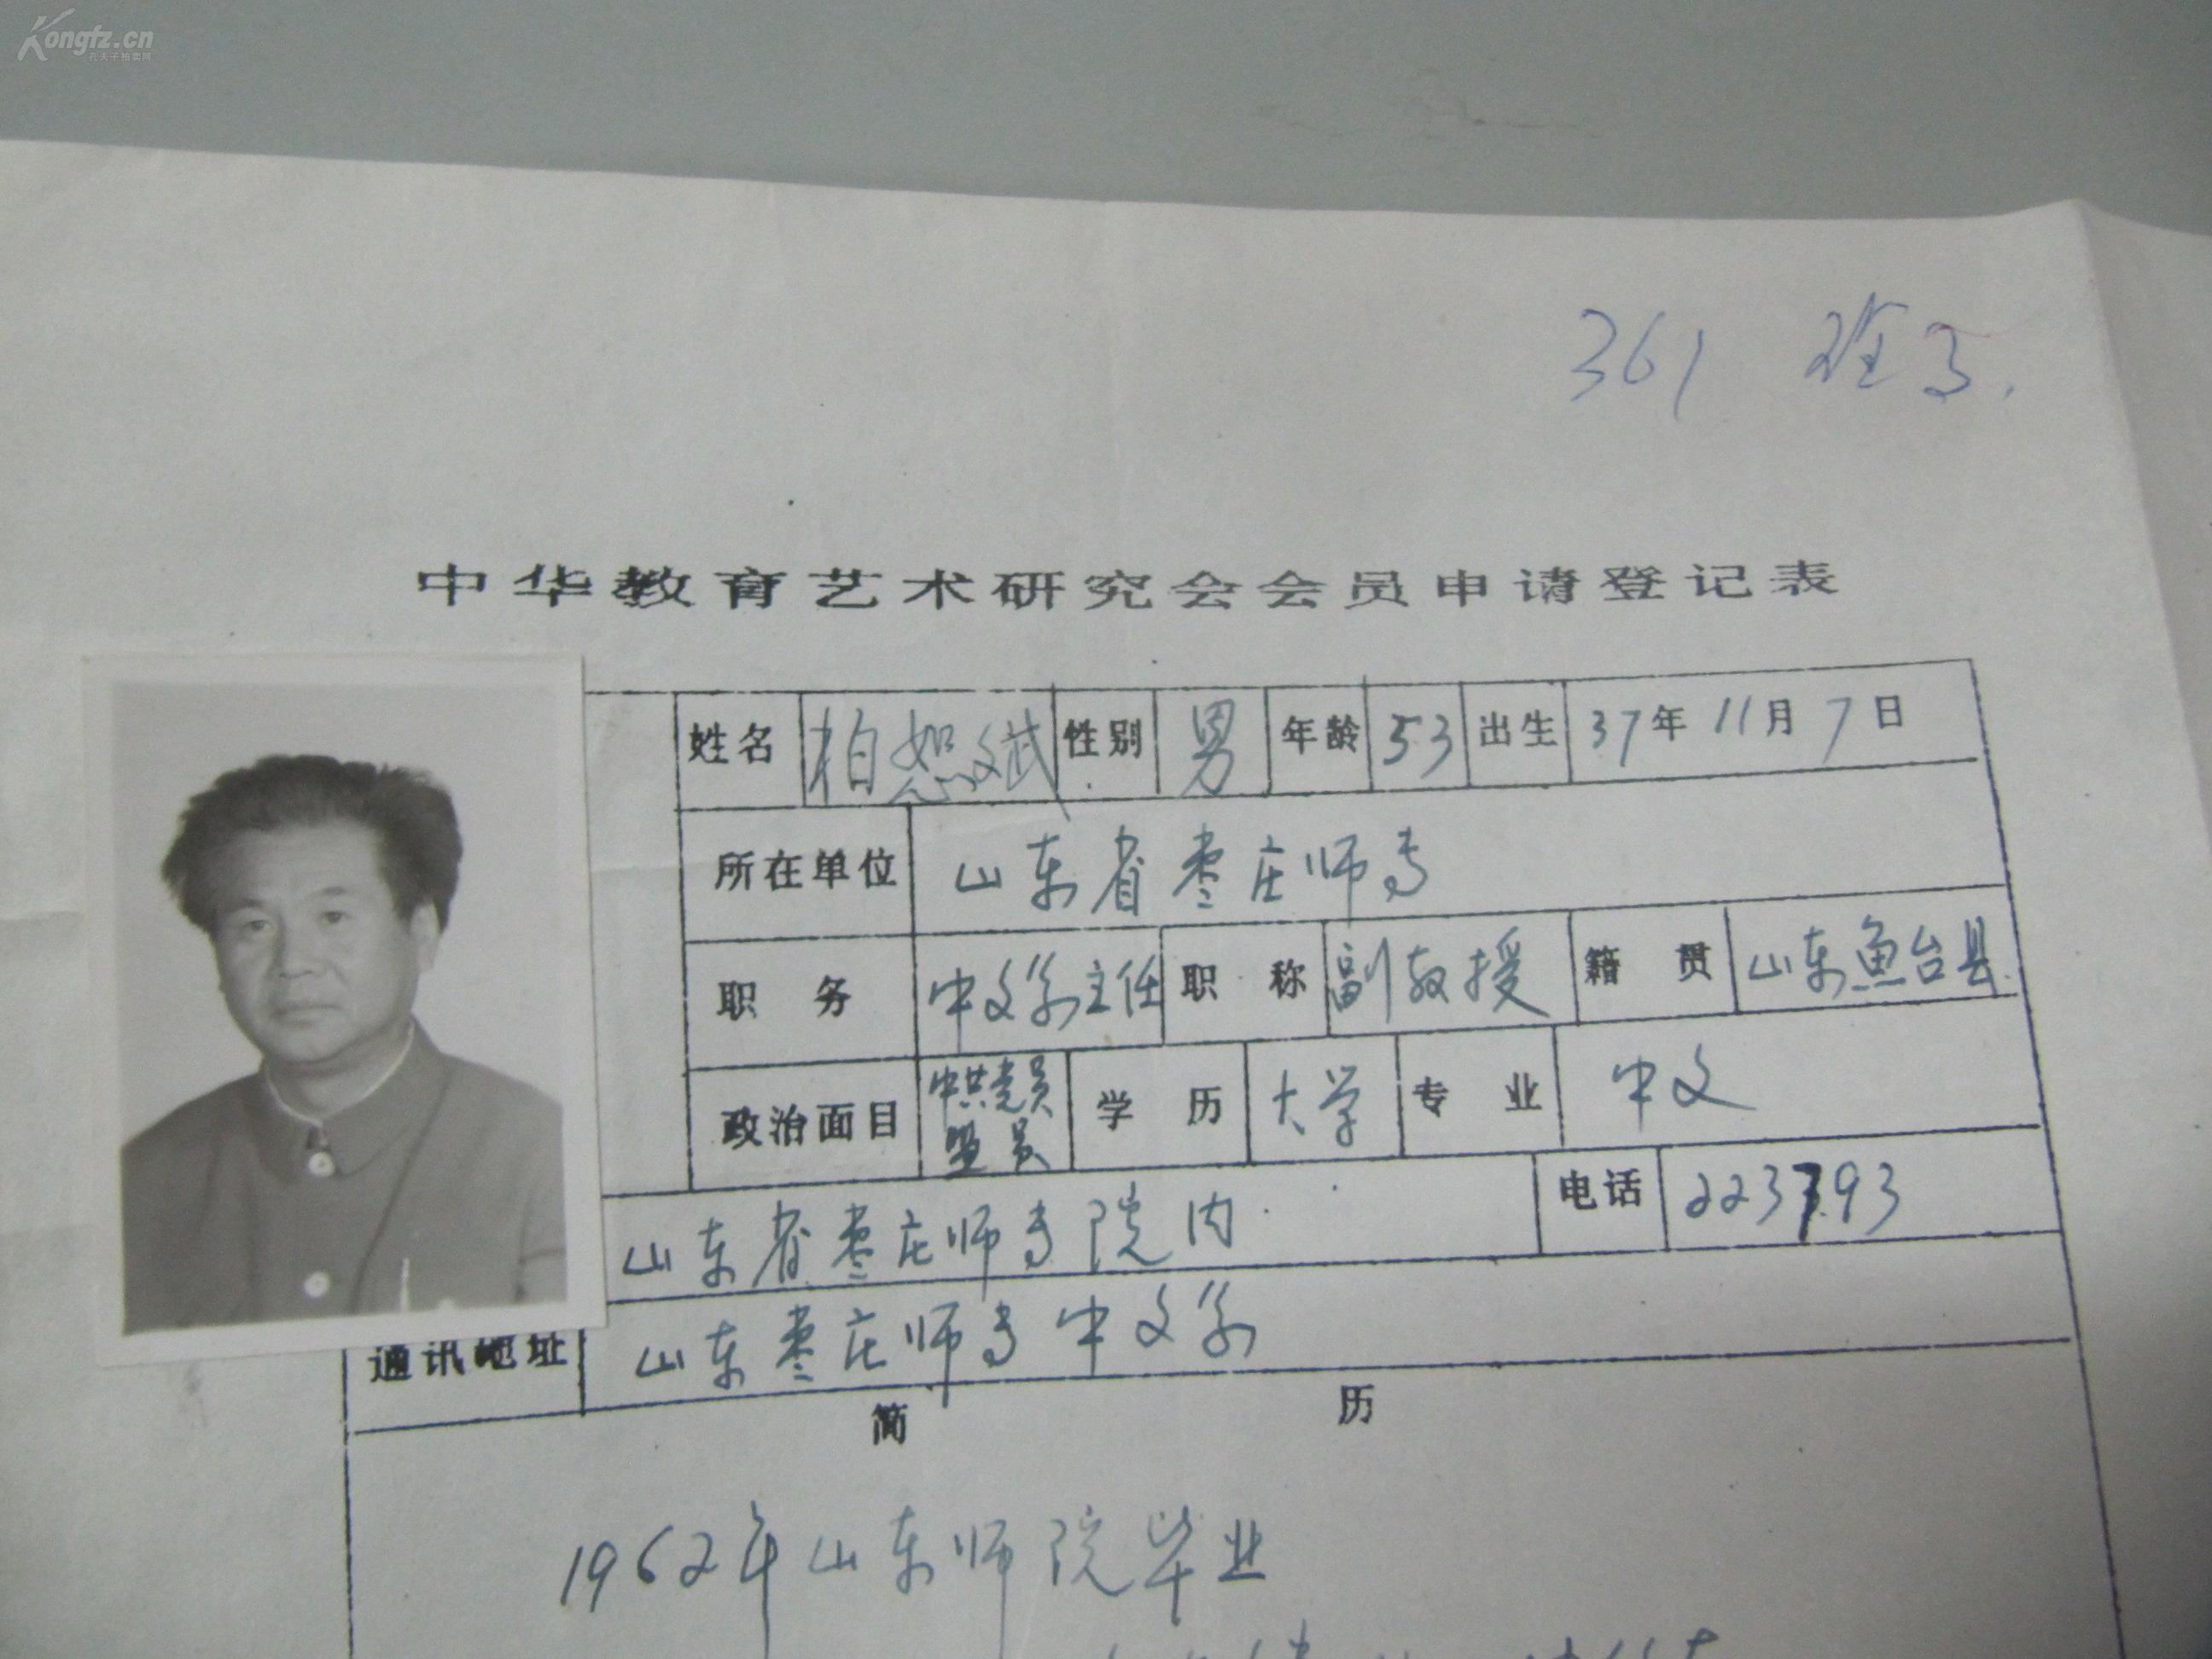 Kongfz.cn
孔夫子拍卖网
361
中华教育艺术研究会会员申请登记表
姓名 柏恕斌 性别 男 年龄 53 出生 37年11月7日
所在单位 山东省枣庄师专
职务 中文系主任 职称 副教授 籍贯 山东鱼台县
政治面目 中共党员 盟员 学历 大学 专业 中文
山东省枣庄师专院内 电话 223793
通讯地址 山东枣庄师专中文系
简历
1962年山东师院毕业